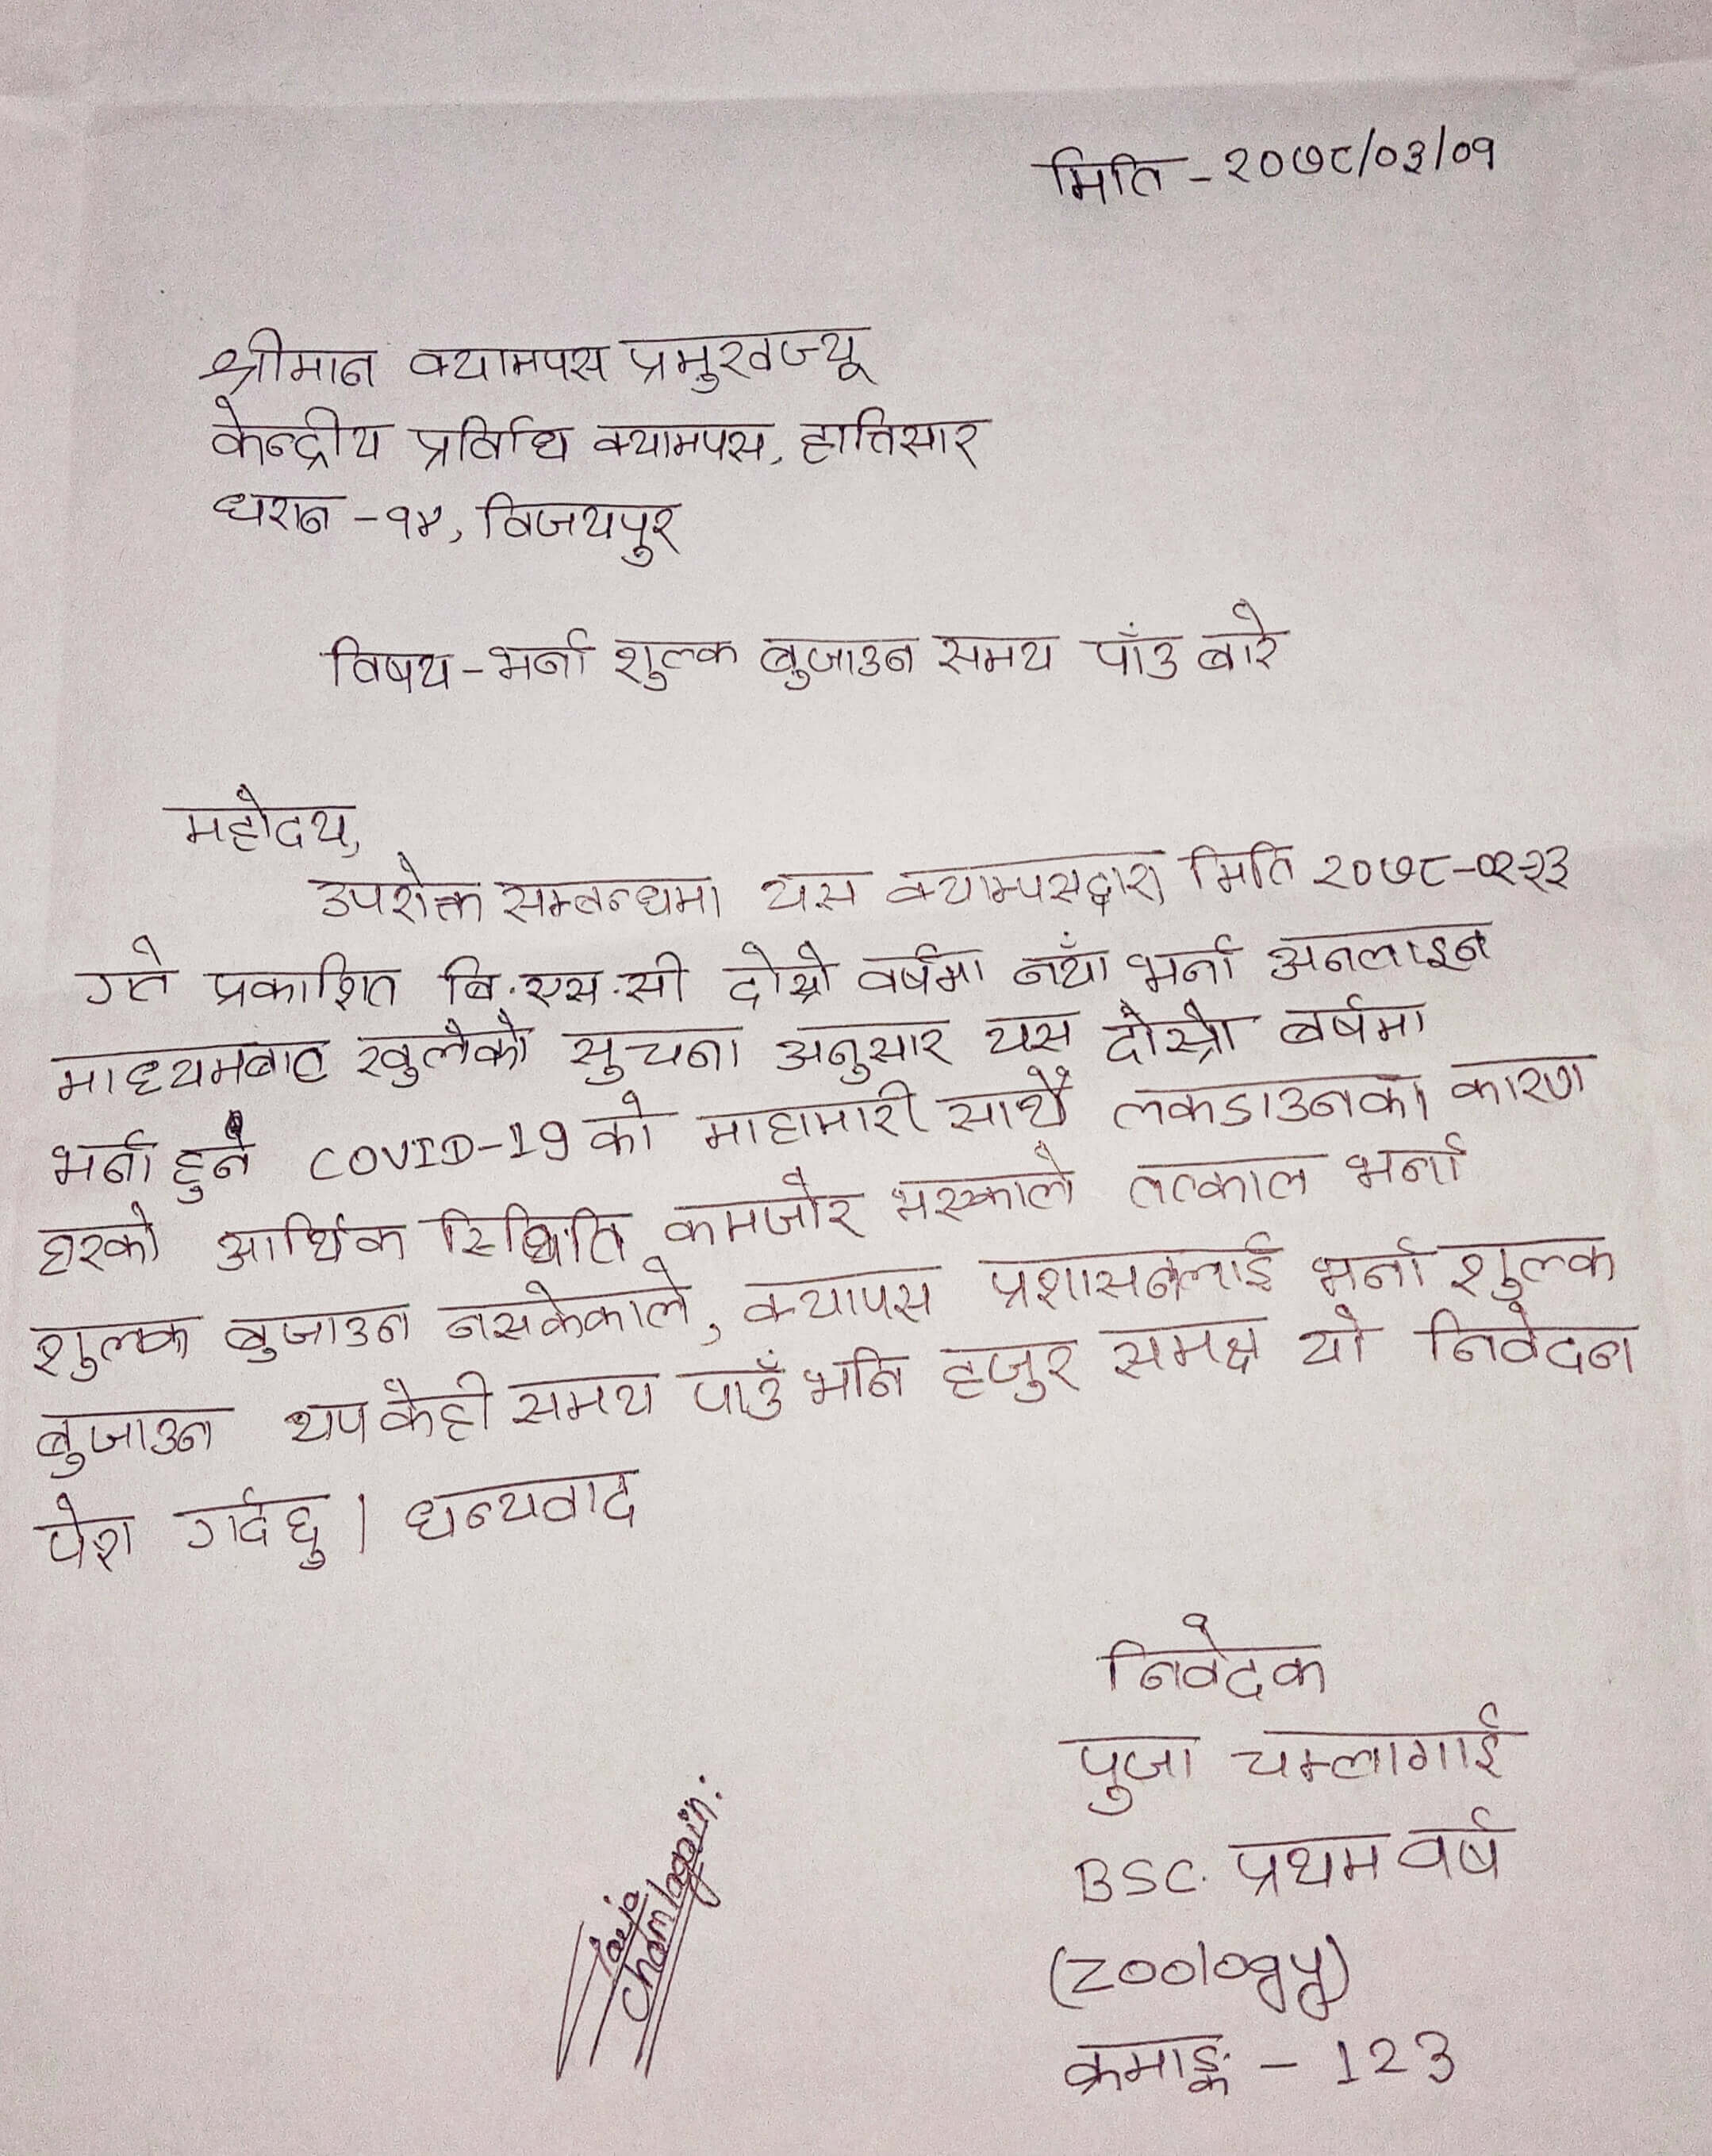 मिति - २०७८/०३/०१
श्रीमान क्यामपस प्रमुखज्यू
केन्द्रीय प्रविधि क्यामपस, हात्तिसार
धरान - १४, विजयपुर
विषय - भर्ना शुल्क बुजाउन समय पाँउ बारे
महोदय,
उपरोक्त सम्बन्धमा यस क्याम्पसद्वारा मिति २०७८-०२-२३
गते प्रकाशित बि.एस.सी दोस्रो वर्षमा नयाँ भर्ना अनलाइन
माध्यमबाट खुलेको सुचना अनुसार यस दोस्रो बर्षमा
भर्ना हुने COVID-19 को माहामारी साथै लकडाउनका कारण
घरको आर्थिक स्थिति कमजोर भएकाले तत्काल भर्ना
शुल्क बुजाउन नसकेकाले, क्यापस प्रशासनलाई भर्ना शुल्क
बुजाउन थप केही समय पाउँ भनि हजुर समक्ष यो निवेदन
पेश गर्दछु । धन्यवाद
निवेदक
पुजा चम्लागाई
BSC. प्रथम वर्ष
(Zoology)
क्रमाङ्क - 123
Chamlagain.